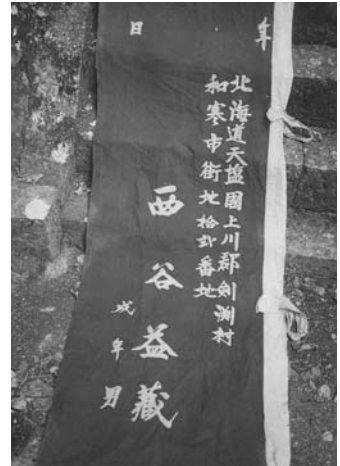 年
北海道天塩國上川郡剣淵村
和寒市街地拾弐番地
西谷益藏
戌年男
日